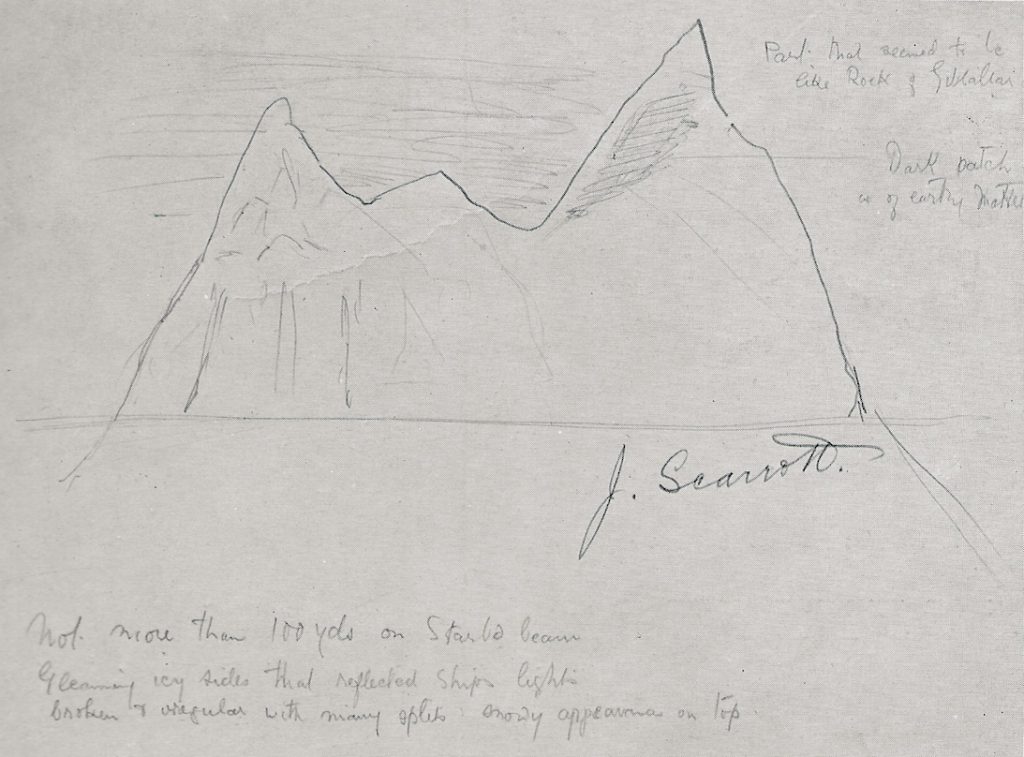 Part that seemed to be
like Rock of Gibraltar
Dark patch
as of earthy matter
J. Scarrott.
Not more than 100 yds on Starbd beam
Gleaming icy sides that reflected Ships lights
broken & irregular with many splits snowy appearance on top.